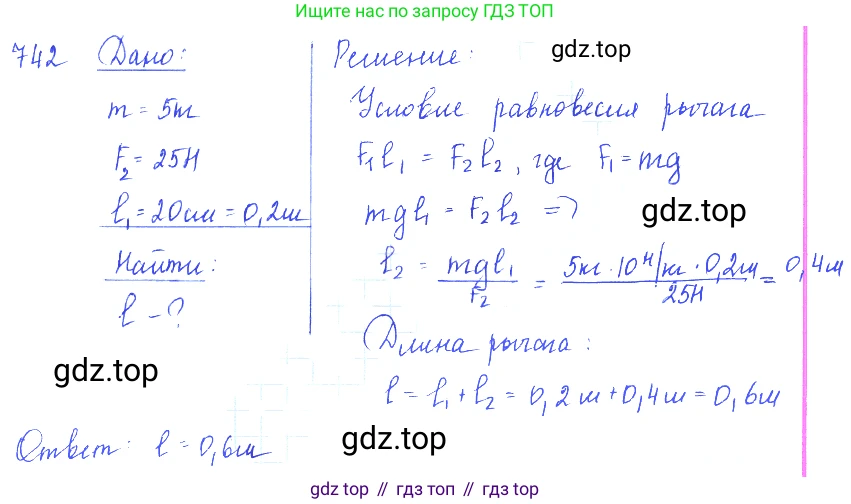 Ищите нас по запросу ГДЗ ТОП
742 Дано:
m = 5т
F₂ = 25Н
l₁ = 20см = 0,2м
Найти:
l - ?
Решение:
gdz.top
Условие равновесия рычага
F₁l₁ = F₂l₂, где F₁ = mg
mgl₁ = F₂l₂ =>
gdz.top
l₂ = mgl₁/F₂ = 5кг · 10 Н/кг · 0,2м/25Н = 0,4м
Длина рычага:
l = l₁ + l₂ = 0,2м + 0,4м = 0,6м
gdz.top
Ответ: l = 0,6м
gdz.top
gdz top // гдз топ // gdz top